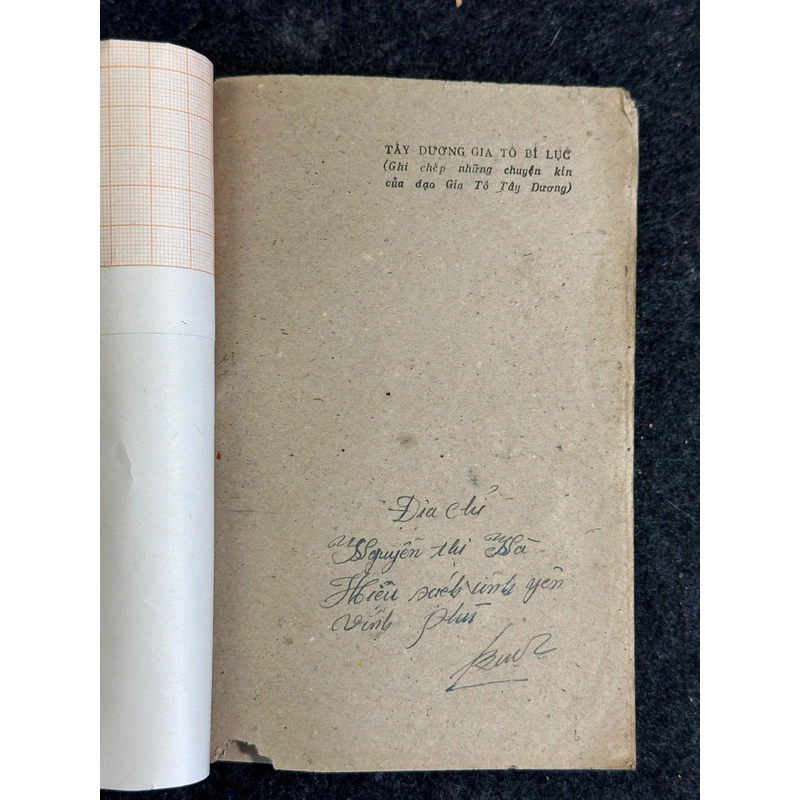 TÂY DƯƠNG GIA TÔ BÍ LỤC
(Ghi chép những chuyện kín
của đạo Gia Tô Tây Dương)
Địa chỉ
Nguyễn thị Hà
Hiệu sách vĩnh yên
vĩnh phú